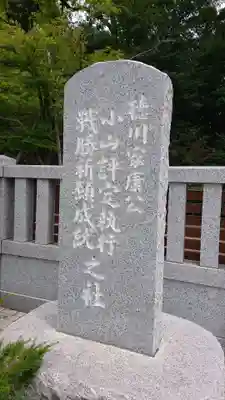 徳川家康公
小山評定執行
戦勝祈願成就之社